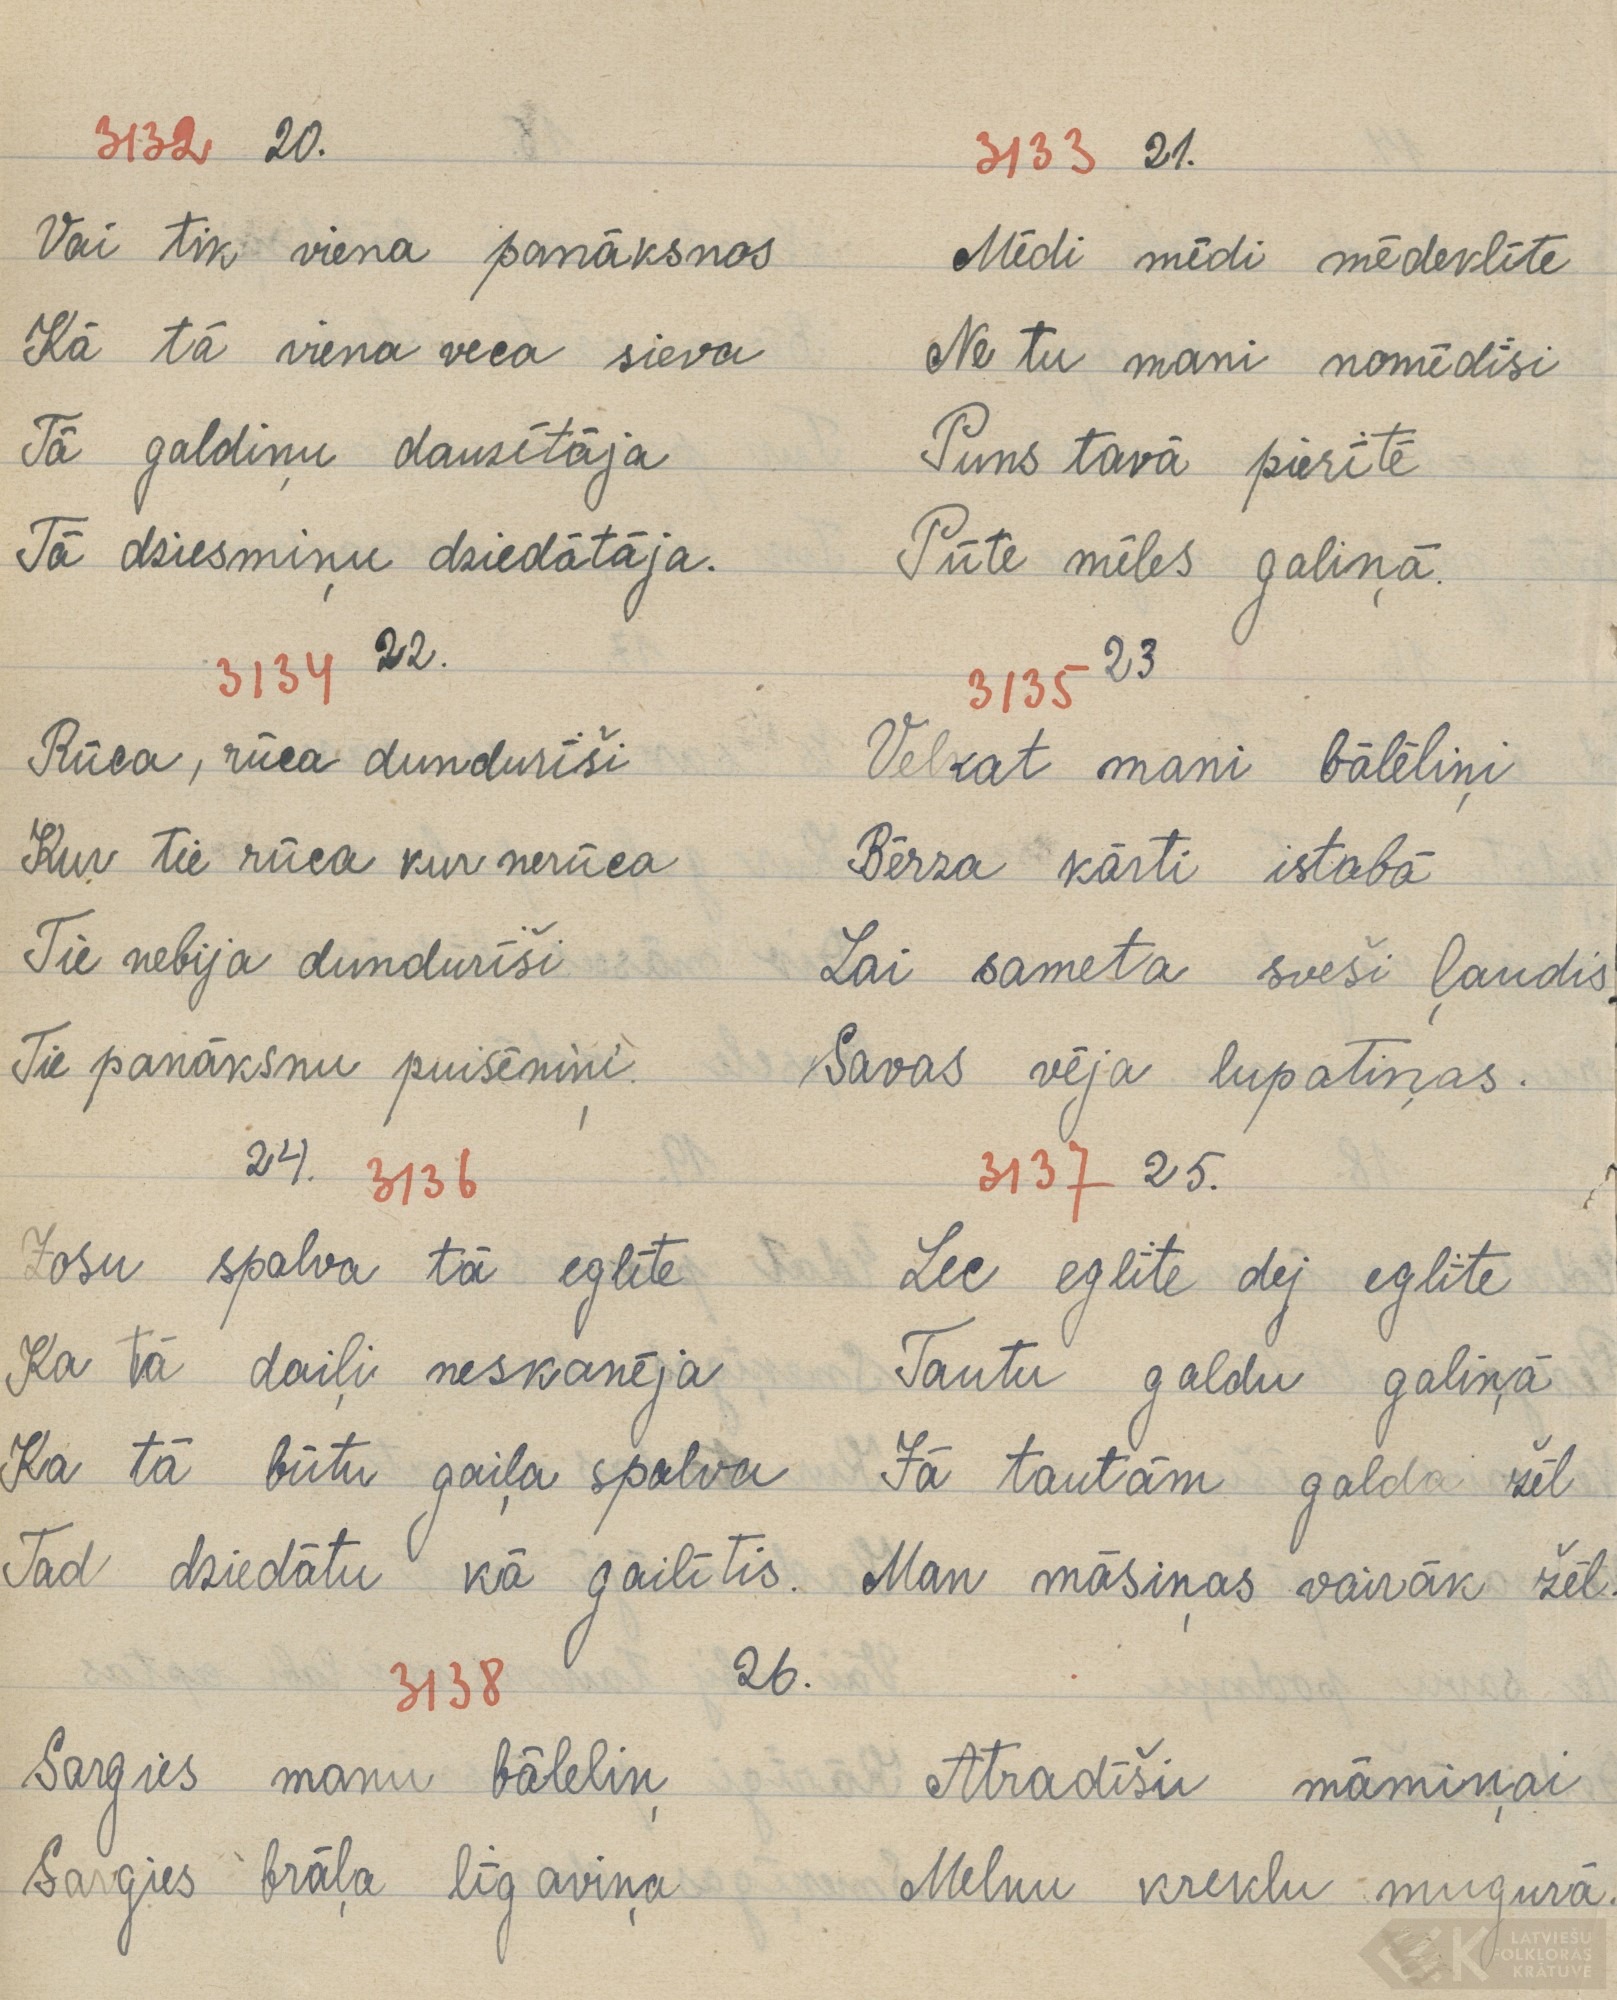 3132 20.
Vai tik viena panāksnos
Kā tā viena veca sieva
Tā galdiņu dauzītāja
Tā dziesmiņu dziedātāja.
3133 21.
Mēdi mēdi mēdeklīte
Ne tu mani nomēdīsi
Puns tavā pierītē
Pūte mēles galiņā.
3134 22.
Rūca, rūca dundurīši
Kur tie rūca kur nerūca
Tie nebija dundurīši
Tie panāksnu puisēniņi.
3135 23
Velkat mani bālēliņi
Bērza kārti istabā
Lai sameta sveši ļaudis
Savas vēja lupatiņas.
24. 3136
Zosu spalva tā eglīte
Ka tā daiļi neskanēja
Ka tā būtu gaiļa spalva
Tad dziedātu kā gailītis.
3137 25.
Lec eglīte dej eglīte
Tautu galdu galiņā
Jā tautām galda žēl
Man māsiņas vairāk žēl.
3138 26.
Sargies manu bāleliņ
Sargies brāļa līgaviņa
Atradīšu māmiņai
Melnu kreklu mugurā.
LATVIEŠU
FOLKLORAS
KRĀTUVE